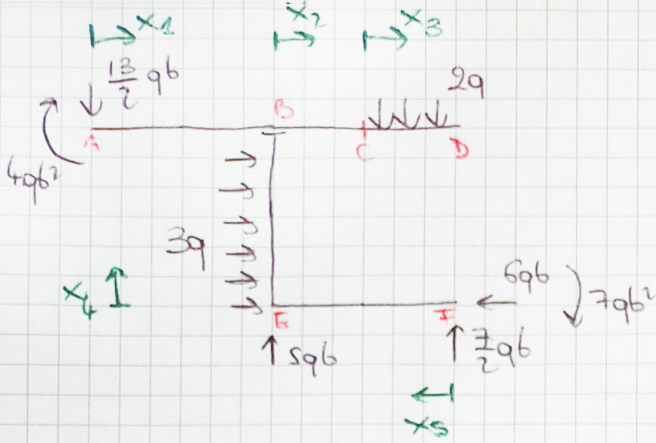 x₁
x₂
x₃
13/2 qb
2q
B
A
C
D
4qb²
3q
x₄
6qb
7qb²
E
F
5qb
7/2 qb
x₅